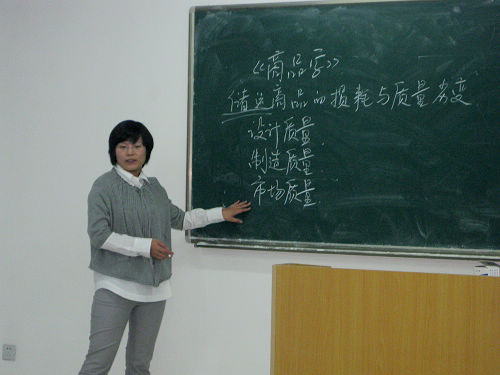 《商品学》
储运商品的损耗与质量劣变
设计质量
制造质量
市场质量